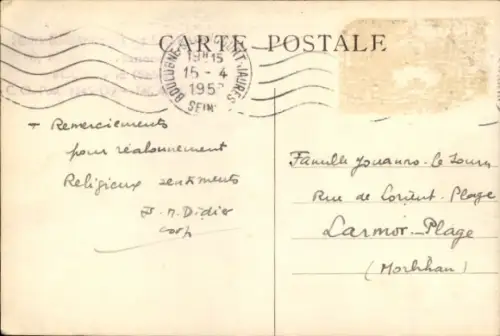 CARTE POSTALE
19H15
15-4
195
SEINE
+ Remerciements
pour réabonnement
Religieux sentiments
J. M. Didier
Famille Jouanno-le Sourn
Rue de Lorient-Plage
Larmor-Plage
(Morbihan)